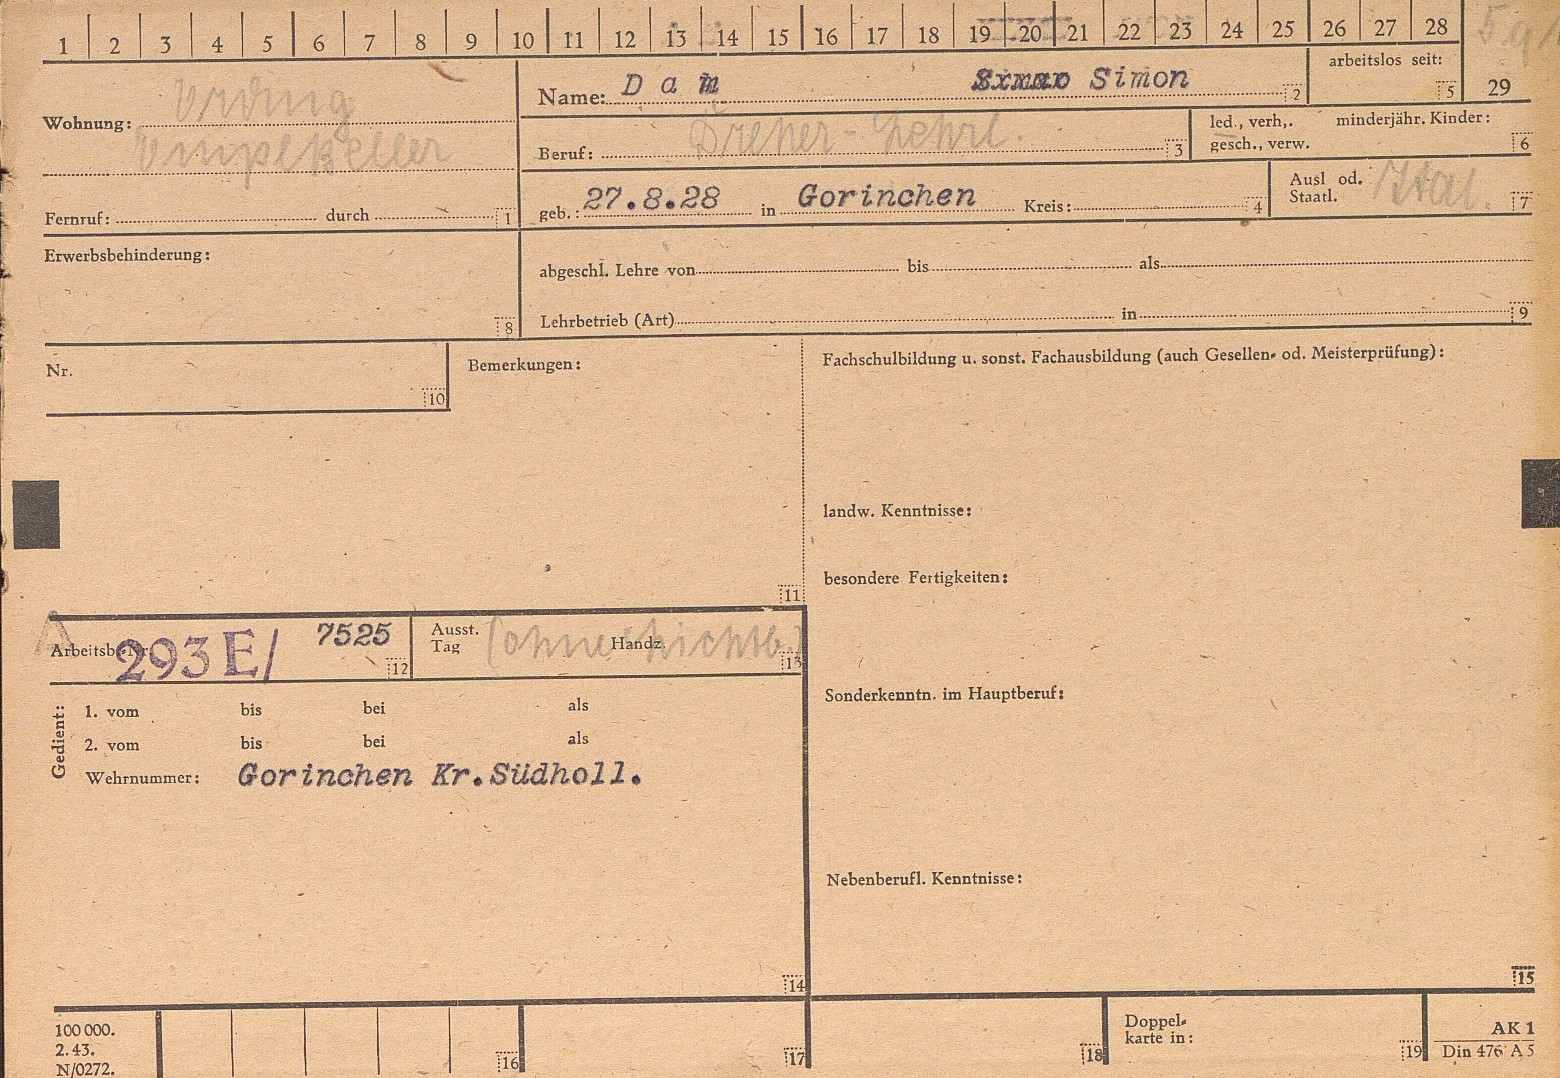 1 2 3 4 5 6 7 8 9 10 11 12 13 14 15 16 17 18 19 20 21 22 23 24 25 26 27 28
Wohnung:
Fernruf: durch 1
Name: Dam Simon 2
arbeitslos seit: 5
29
Beruf: Dreher-Lehrl. 3
led., verh,. minderjähr. Kinder:
gesch., verw. 6
geb.: 27.8.28 in Gorinchen Kreis: 4
Ausl od.
Staatl. Ital. 7
Erwerbsbehinderung:
8
abgeschl. Lehre von bis als
Lehrbetrieb (Art) in 9
Nr.
10
Bemerkungen:
11
Fachschulbildung u. sonst. Fachausbildung (auch Gesellen- od. Meisterprüfung):
landw. Kenntnisse:
besondere Fertigkeiten:
Sonderkenntn. im Hauptberuf:
Nebenberufl. Kenntnisse:
15
Arbeitsb-Nr. 293 E/ 7525 12
Ausst.
Tag (ohne Handz. 13
Gedient:
1. vom bis bei als
2. vom bis bei als
Wehrnummer: Gorinchen Kr.Südholl.
14
100 000.
2. 43.
N/0272.
16
17
18
Doppel-
karte in:
19
AK 1
Din 476 A 5